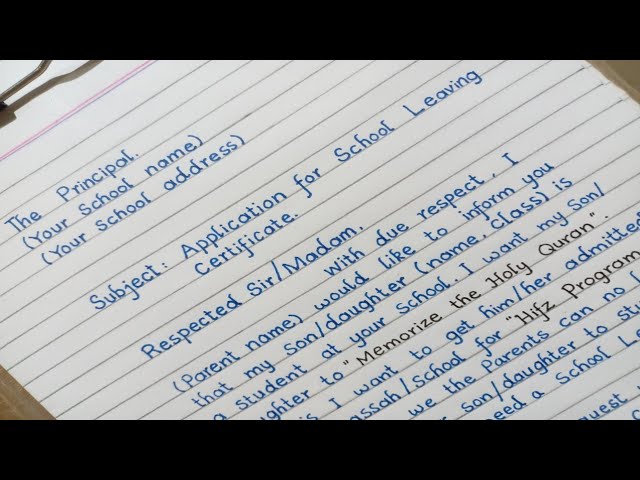 The Principal.
(Your School name)
(Your school address)
Subject: Application for School Leaving
Certificate.
Respected Sir/Madam,
With due respect, I
(Parent name) would like to inform you
that my son/daughter (name, class) is
a student at your school. I want my son/
ghter to "Memorize the Holy Quran".
is I want to get him/her admitte
assah/school for "Hifz Program
we the parents can no
son/daughter to st
eed a School L
quest